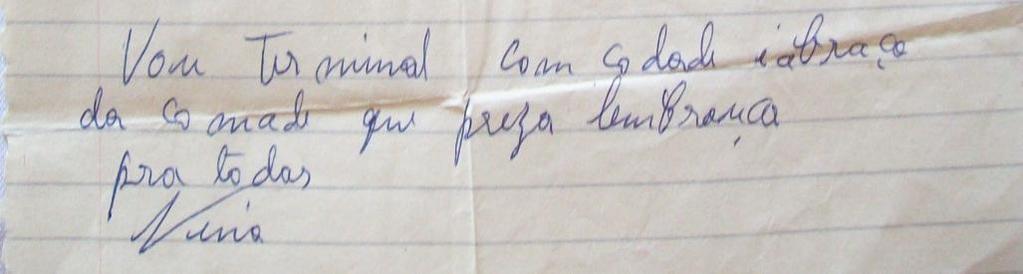 Vou Terminal com codade iabraço
da comade que preza lembrança
pra todas
Nena